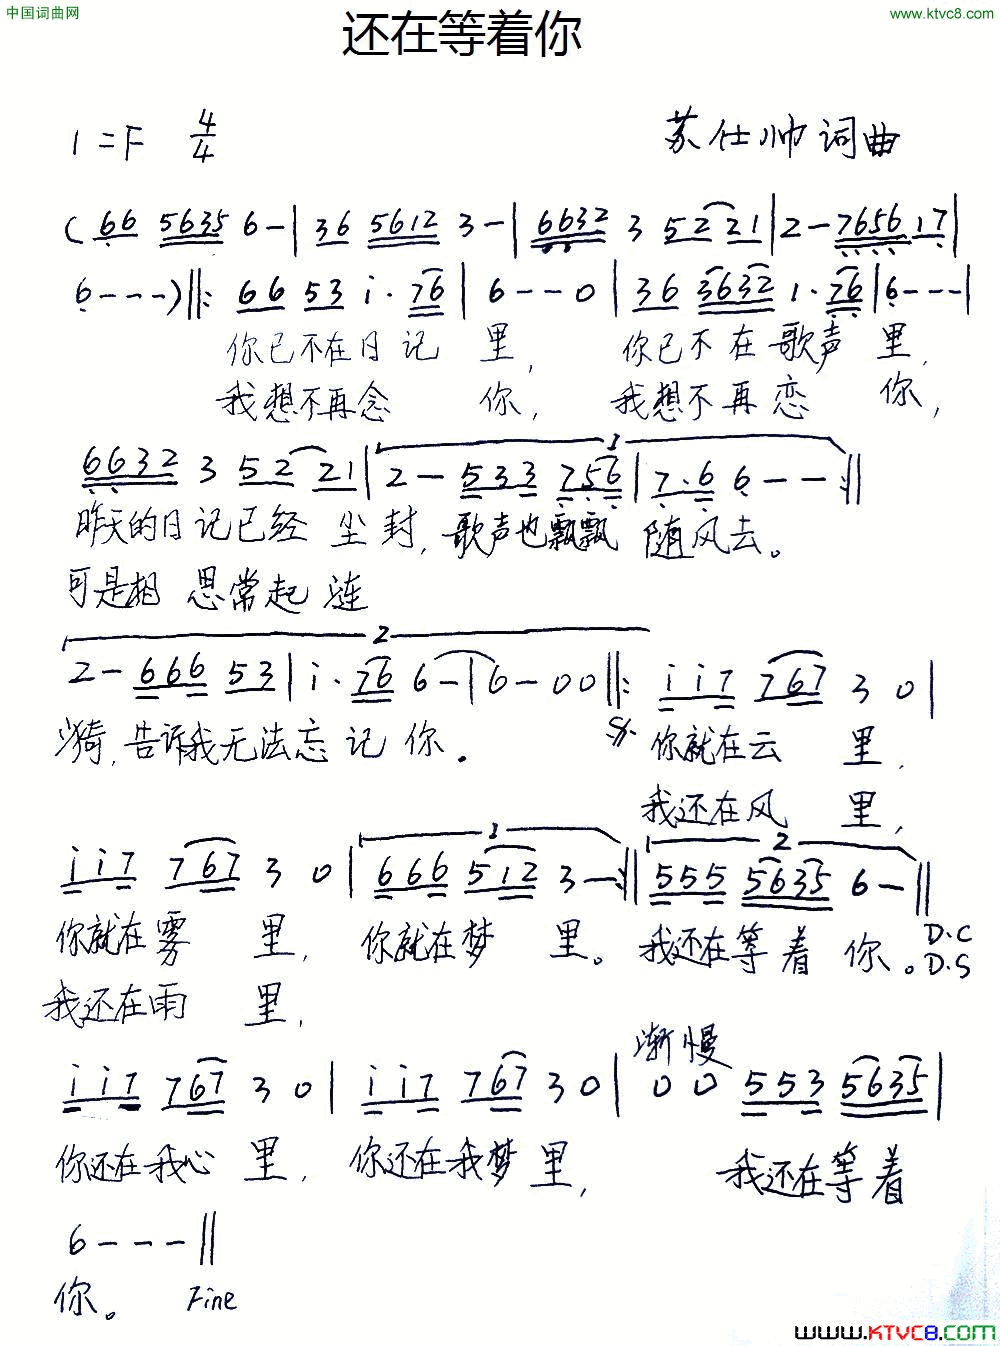 中国词曲网
www.ktvc8.com
还在等着你
1=F 4/4
苏仕帅词曲
(66 5635 6-|36 5612 3-|6632 3 52 21|2-7656 17|
6---)||: 66 53 i·76|6--0|36 3632 1·76|6---|
你已不在日记 里, 你已不在歌声 里,
我想不再念 你, 我想不再恋 你,
1
6632 3 52 21|2-533 756|7·6 6--:||
昨天的日记已经 尘封, 歌声也飘飘 随风去。
可是相 思常起 涟
2
2-666 53|i·76 6-|6-00||: i i7 767 3 0|
漪, 告诉我无法忘 记 你。 你就在云 里,
我还在风 里,
1 2
i i7 767 3 0|666 512 3-:||555 5635 6-||
你就在雾 里, 你就在梦 里。 我还在等 着 你。 D.C
D.S
我还在雨 里,
渐慢
i i7 767 3 0|i i7 767 30|0 0 553 5635|
你还在我心 里, 你还在我梦 里, 我还在等 着
6---||
你。 Fine
www.KTVC8.com